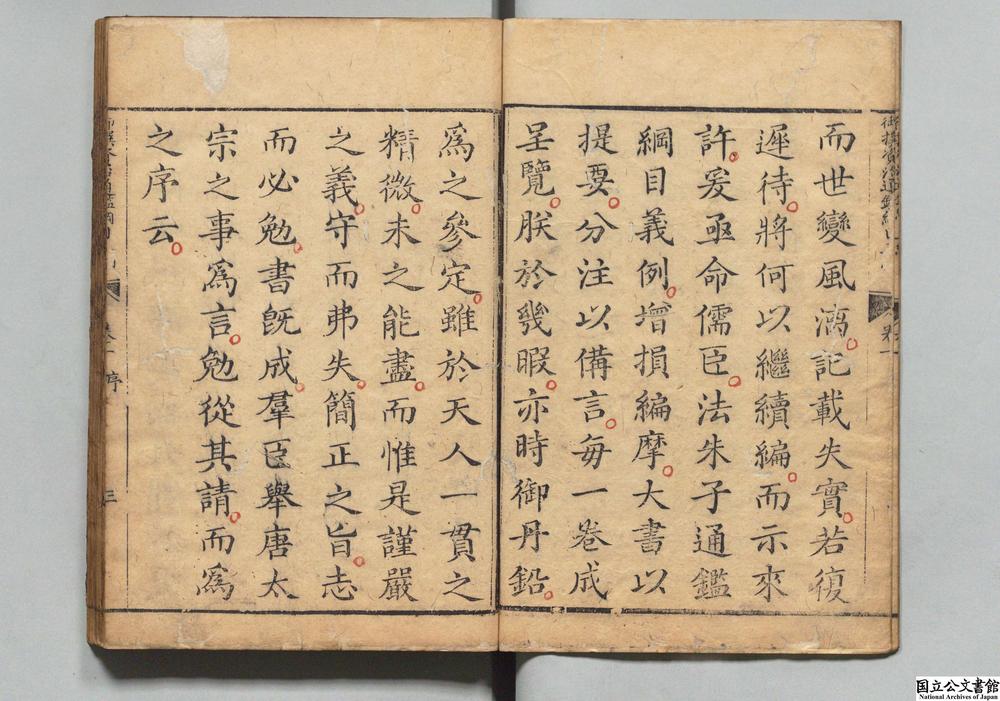 而世變風漓。記載失實。若復
遲待。將何以繼續編。而示來
許。爰亟命儒臣。法朱子通鑑
綱目義例。增損編摩。大書以
提要。分注以備言。每一卷成
呈覽。朕於幾暇。亦時御丹鉛。
為之參定。雖於天人一貫之
精微。未之能盡。而惟是謹嚴
之義。守而弗失。簡正之旨。志
而必勉。書旣成。羣臣舉唐太
宗之事為言。勉從其請。而為
之序云。
卷一
序
三
国立公文書館
National Archives of Japan